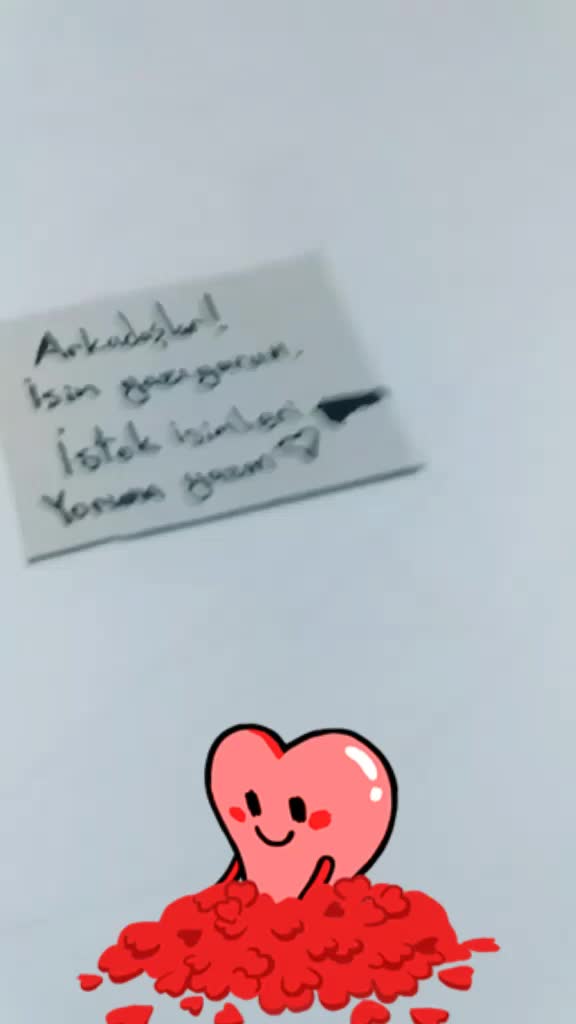 Arkadaşlar!
İsim yazıyorum.
İstek isimleri
Yoruma yazın